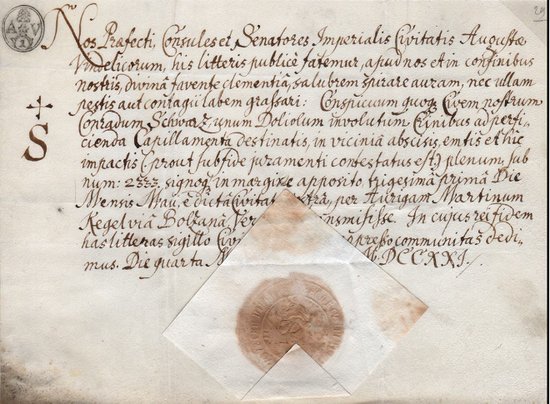 24
A V
Nos Præfecti, Consules et Senatores Imperialis Civitatis Augustæ
Vindelicorum, his litteris publicè fatemur, apud nos et in confinibus
nostris, divinâ favente clementiâ, salubrem spirare auram, nec ullam
pestis aut contagii labem grassari: Conspicuum quoq; Civem nostrum
Conradum Schwarz unum Doliolum involutum, Crinibus ad perfi-
cienda Capillamenta destinatis, in viciniâ abscisis, emtis et hic
impactis (prout sub fide juramenti contestatus est) plenum, sub
num: signoq; in margine apposito, trigesimâ primâ Die
Mensis Maii, è dictâ Civitate extra, per Aurigam Martinum
Kegel viâ Bolzanâ nsmisisse. In cujus rei fidem
has litteras sigillo Civi presso communitas dedi-
mus. Die quarta M.DCCXXI.
S